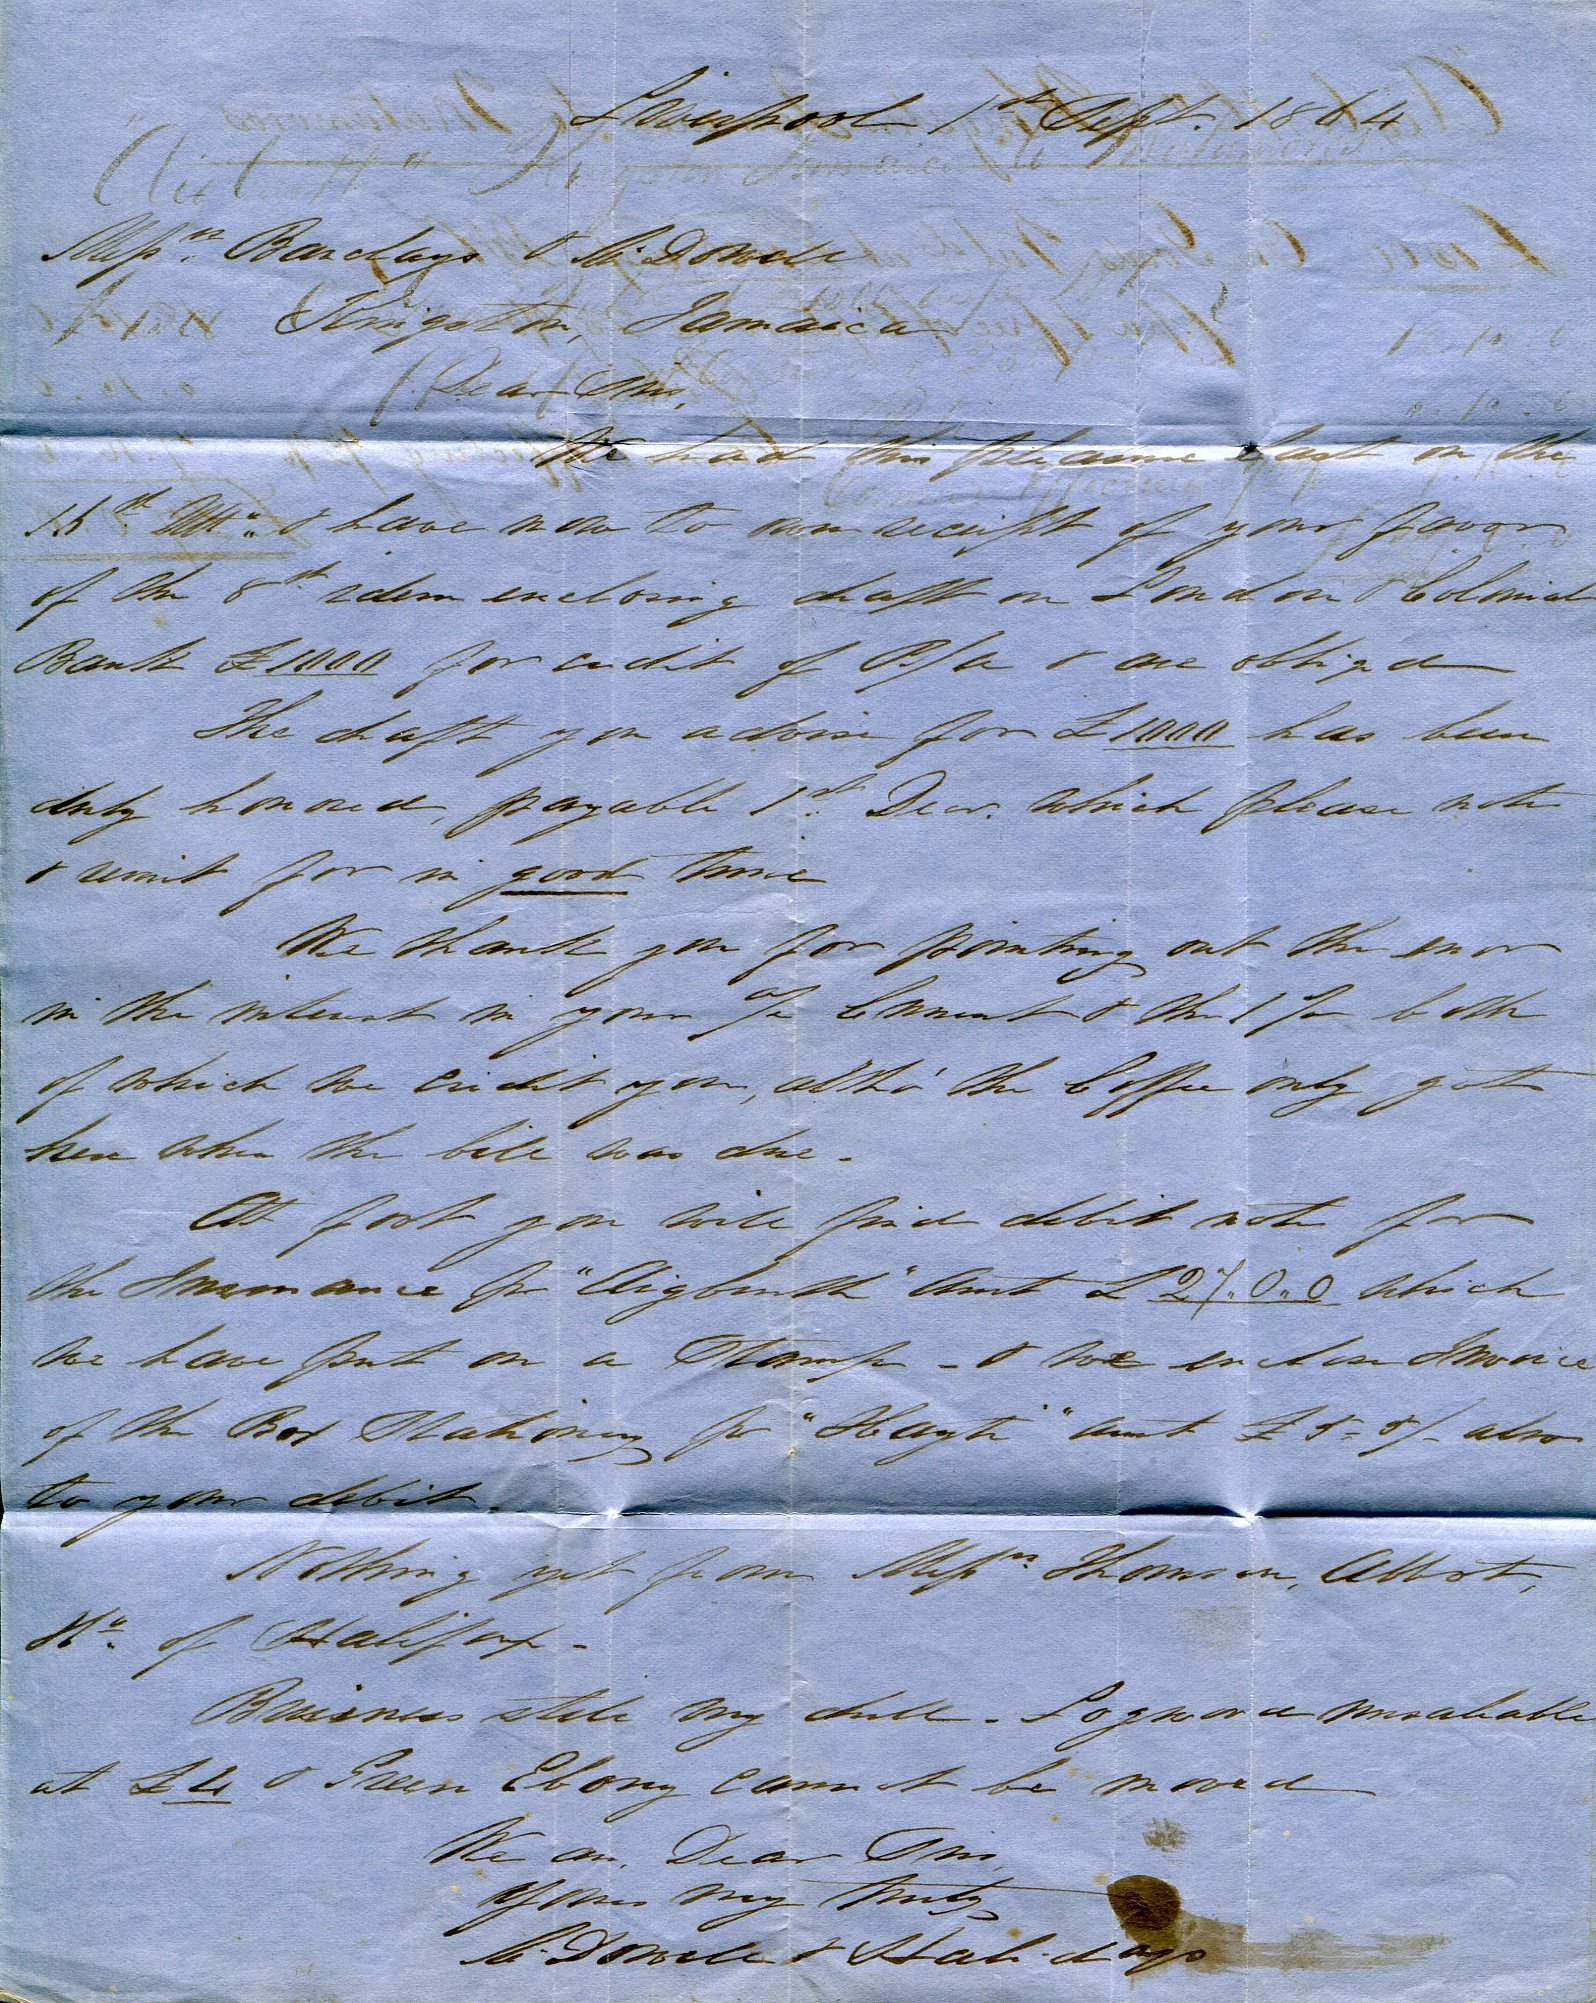 Liverpool 1st Sept. 1864
Messrs. Barclays & McDowell
Kingston, Jamaica
Dear Sirs,
We had this pleasure last on the
15th Ulto. & have now to own receipt of your favor
of the 8th idem enclosing draft on London & Colonial
Bank £1000 for credit of & are obliged
The draft you advise for £1000 has been
duly honored, payable 1st Decr. which please note
& remit for in good time
We thank you for pointing out the error
in the interest in your a/c Current & the 1 both
of which we credit you, altho' the Coffee only got
here when the bill was due.
At foot you will find debit note for
the Insurance pr "Aigburth" amt £27.0.0 which
we have put on a Stamp - & we enclose Invoice
of the Box Stationery pr "Hayti" amt £5-5/- also
to your debit.
Nothing yet from Messrs Thomson, Abbot,
of Halifax -
Business still very dull. Logwood unsaleable
at £4 & Green Ebony cannot be moved
We are, Dear Sirs,
Yours very truly,
McDowell & Halidays